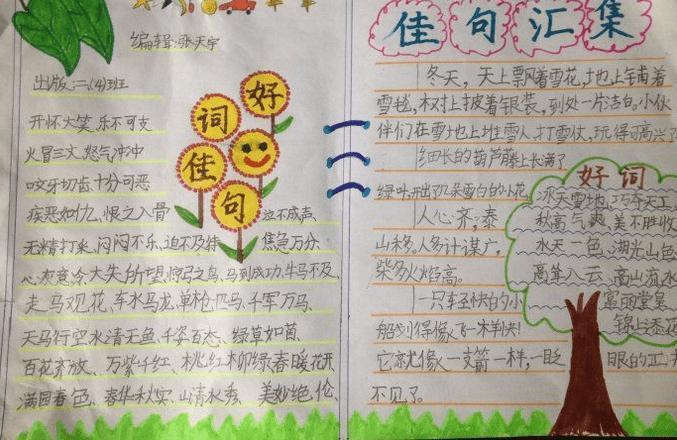 编辑:张天宇
出版:二、(4)班
好
词
佳
句
开怀大笑、乐不可支
火冒三丈、怒气冲冲
咬牙切齿、十分可恶
疾恶如仇、恨之入骨
泣不成声、
无精打采、闷闷不乐、迫不及待
焦急万分、
心灰意冷、大失所望、惊弓之鸟、马到成功、牛马不及、
走马观花、车水马龙、单枪匹马、千军万马、
天马行空、水清无鱼、千姿百态、绿草如茵、
百花齐放、万紫千红、桃红柳绿、春暖花开、
满园春色、春华秋实、山清水秀、美妙绝伦、
佳句汇集
冬天,天上飘着雪花,地上铺着
雪毯,树上披着银装,到处一片洁白,小伙
伴们在雪地上堆雪人,打雪仗,玩得可高兴了
细长的葫芦藤上长满了
绿叶,开出了几朵雪白的小花
人心齐,泰
山移。人多计谋广,
柴多火焰高。
一只轻快的小
船划得像飞一样
它就像一支箭一样,一眨眼的工夫
不见了。
好词
冰天雪地、巧夺天工
秋高气爽、美不胜收
水天一色、湖光山色
高耸入云、高山流水
富丽堂皇
锦上添花